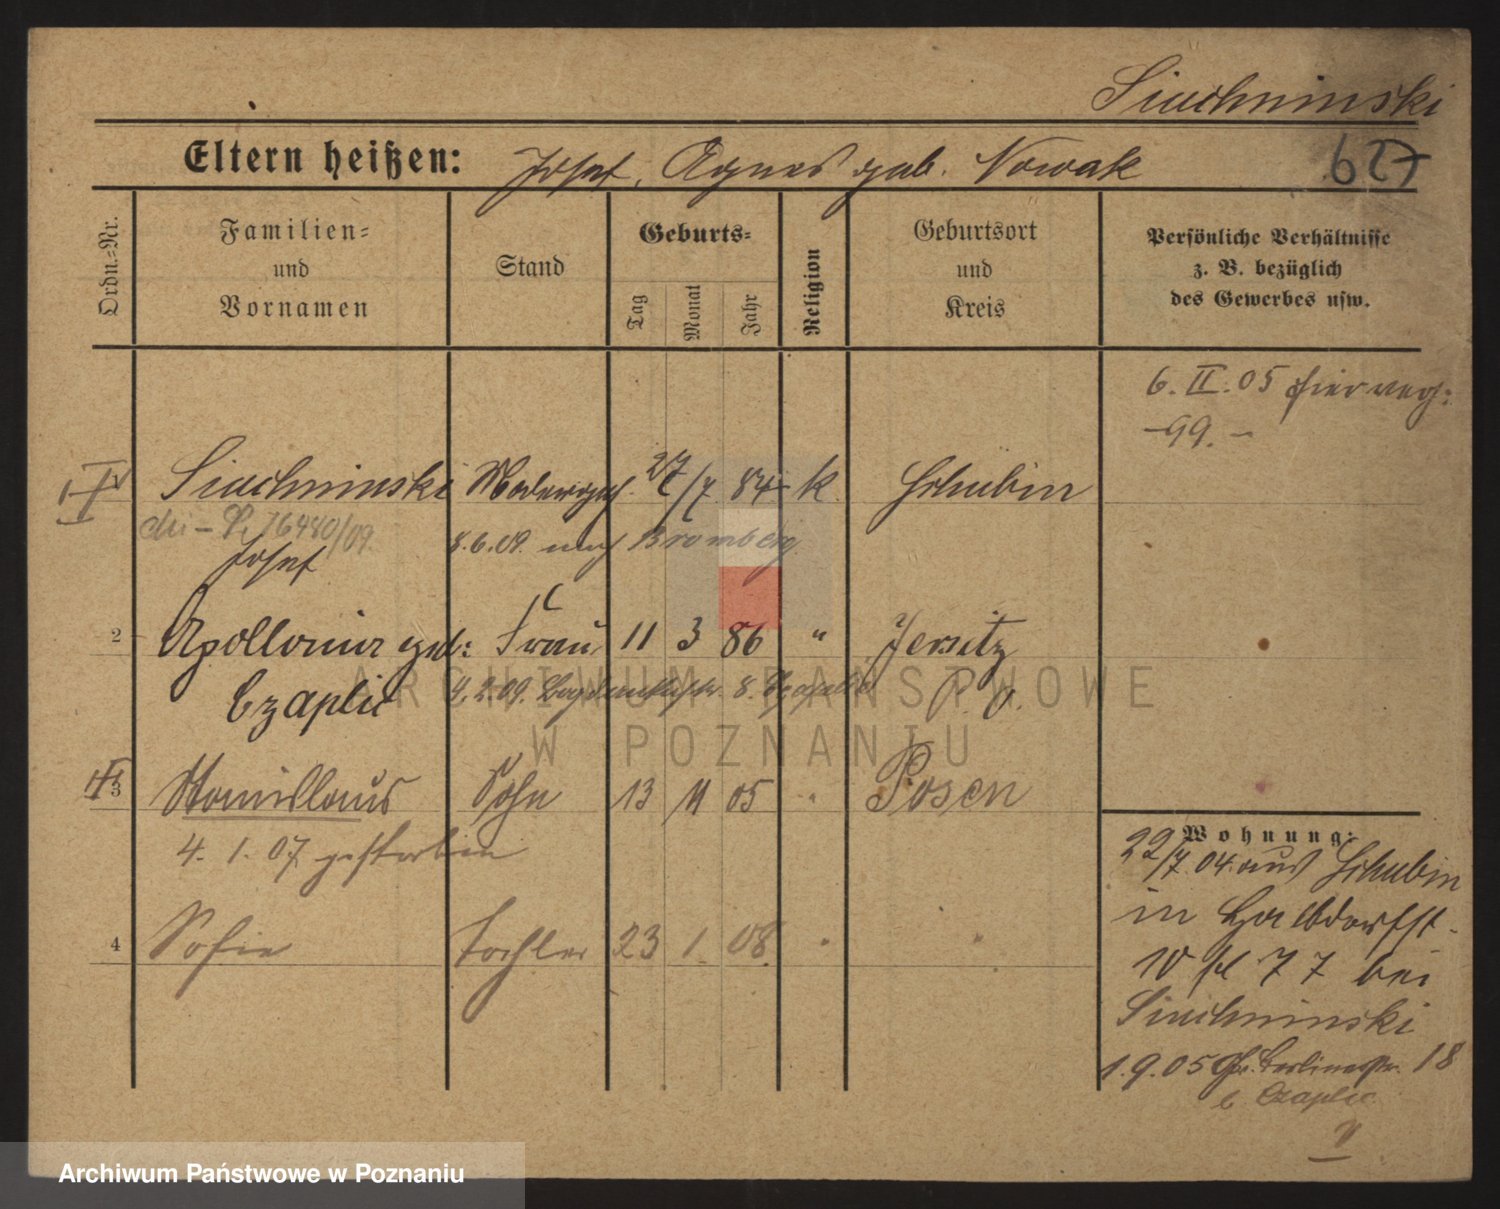 Siuchninski
Eltern heißen: Josef, Agnes geb. Nowak 627
Ordn.-Nr.
Familien=
und
Vornamen
Stand
Geburts=
Tag
Monat
Jahr
Religion
Geburtsort
und
Kreis
Persönliche Verhältnisse
z. B. bezüglich
des Gewerbes usw.
6. II. 05 hier
-99. -
Siuchninski 27/7 84 k. Schubin
16440/09.
Josef 8.6.09. nach Bromberg
2 Apollonia geb: Frau 11 3 86 " Jersitz
Czaplic 8. Czaplic P. O.
3 Stanislaus Sohn 13 11 05 " Posen
4. 1. 07 gestorben
4 Sofie Tochter 23 1 08 "
Wohnung:
22/7. 04. aus Schubin
in
10 77 bei
Siuchninski
1.9.05 Gr. Berlinerstr. 18
b Czaplic
ARCHIWUM PAŃSTWOWE
W POZNANIU
Archiwum Państwowe w Poznaniu